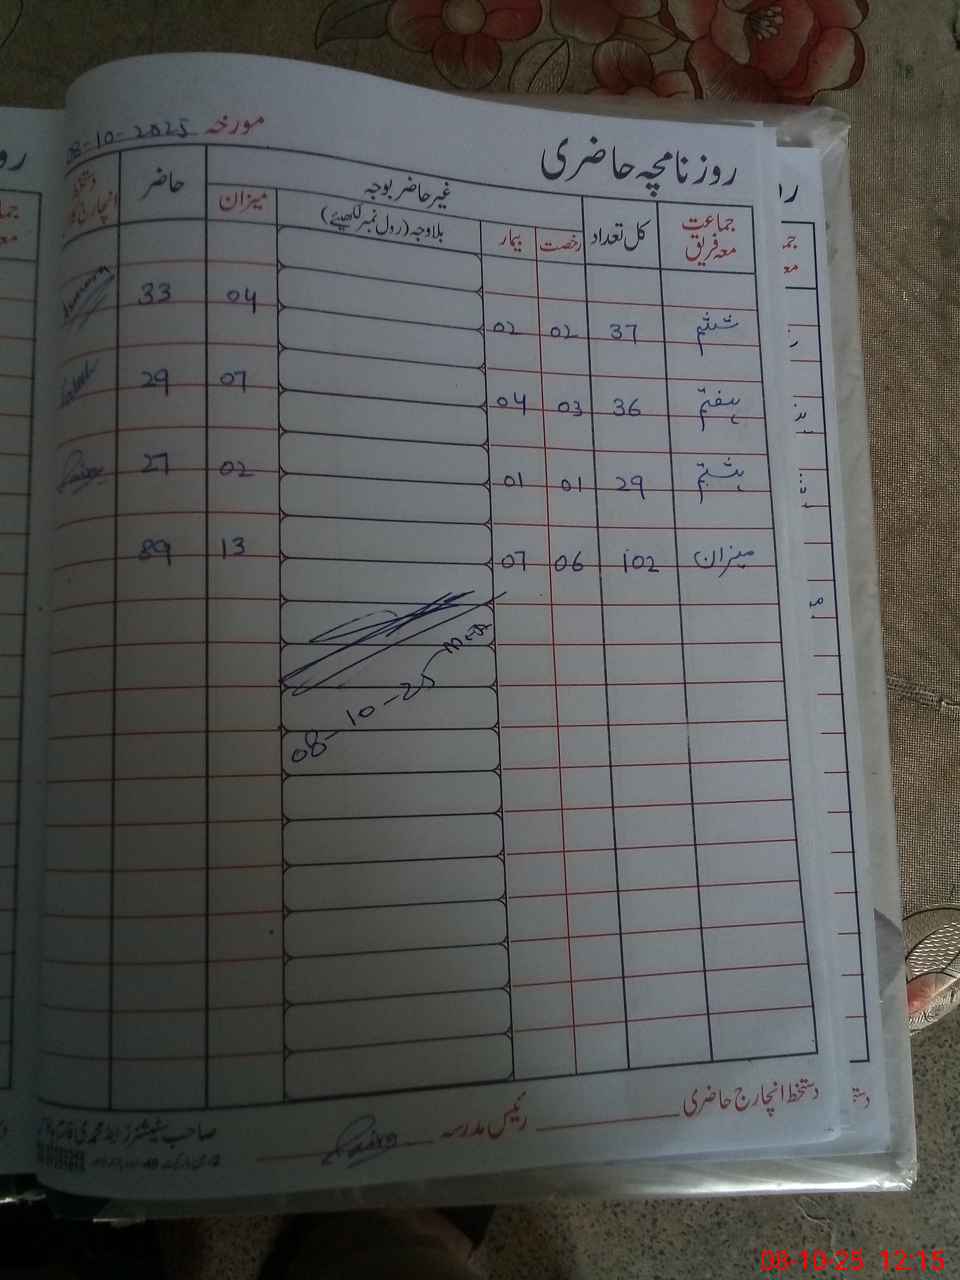 روزنامچہ حاضری
مورخہ 08-10-2025
جماعت معہ فریق کل تعداد غیر حاضر بوجہ حاضر دستخط انچارج
رخصت بیمار بلاوجہ (رول نمبر لکھیئے) میزان
ششم 37 02 02 04 33
ہفتم 36 03 04 07 29
ہشتم 29 01 01 02 27
میزان 102 06 07 13 89
08-10-25
دستخط انچارج حاضری رئیس مدرسہ
08-10-25 12:15